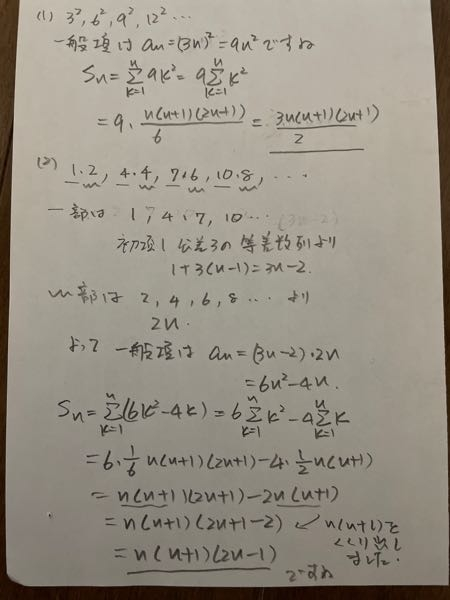 (1) 3², 6², 9², 12² …
一般項は an=(3n)²=9n² ですね
Sn=Σ[k=1→n]9k²=9Σ[k=1→n]k²
=9・n(n+1)(2n+1)/6=3n(n+1)(2n+1)/2
(2) 1・2, 4・4, 7・6, 10・8, …
一部は 1, 4, 7, 10 …
初項1 公差3の等差数列より
1+3(n-1)=3n-2.
〰部は 2, 4, 6, 8 … より
2n.
よって 一般項は an=(3n-2)・2n
=6n²-4n.
Sn=Σ[k=1→n](6k²-4k)=6Σ[k=1→n]k²-4Σ[k=1→n]k
=6・1/6 n(n+1)(2n+1)-4・1/2 n(n+1)
=n(n+1)(2n+1)-2n(n+1)
=n(n+1)(2n+1-2) ↙ n(n+1)で
くくり出し
ました.
=n(n+1)(2n-1)
ですね